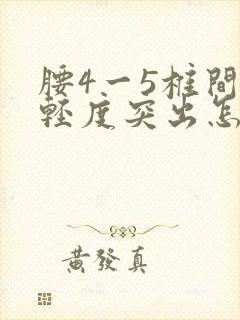 腰4一5椎間
輕度突出怎
黃發真